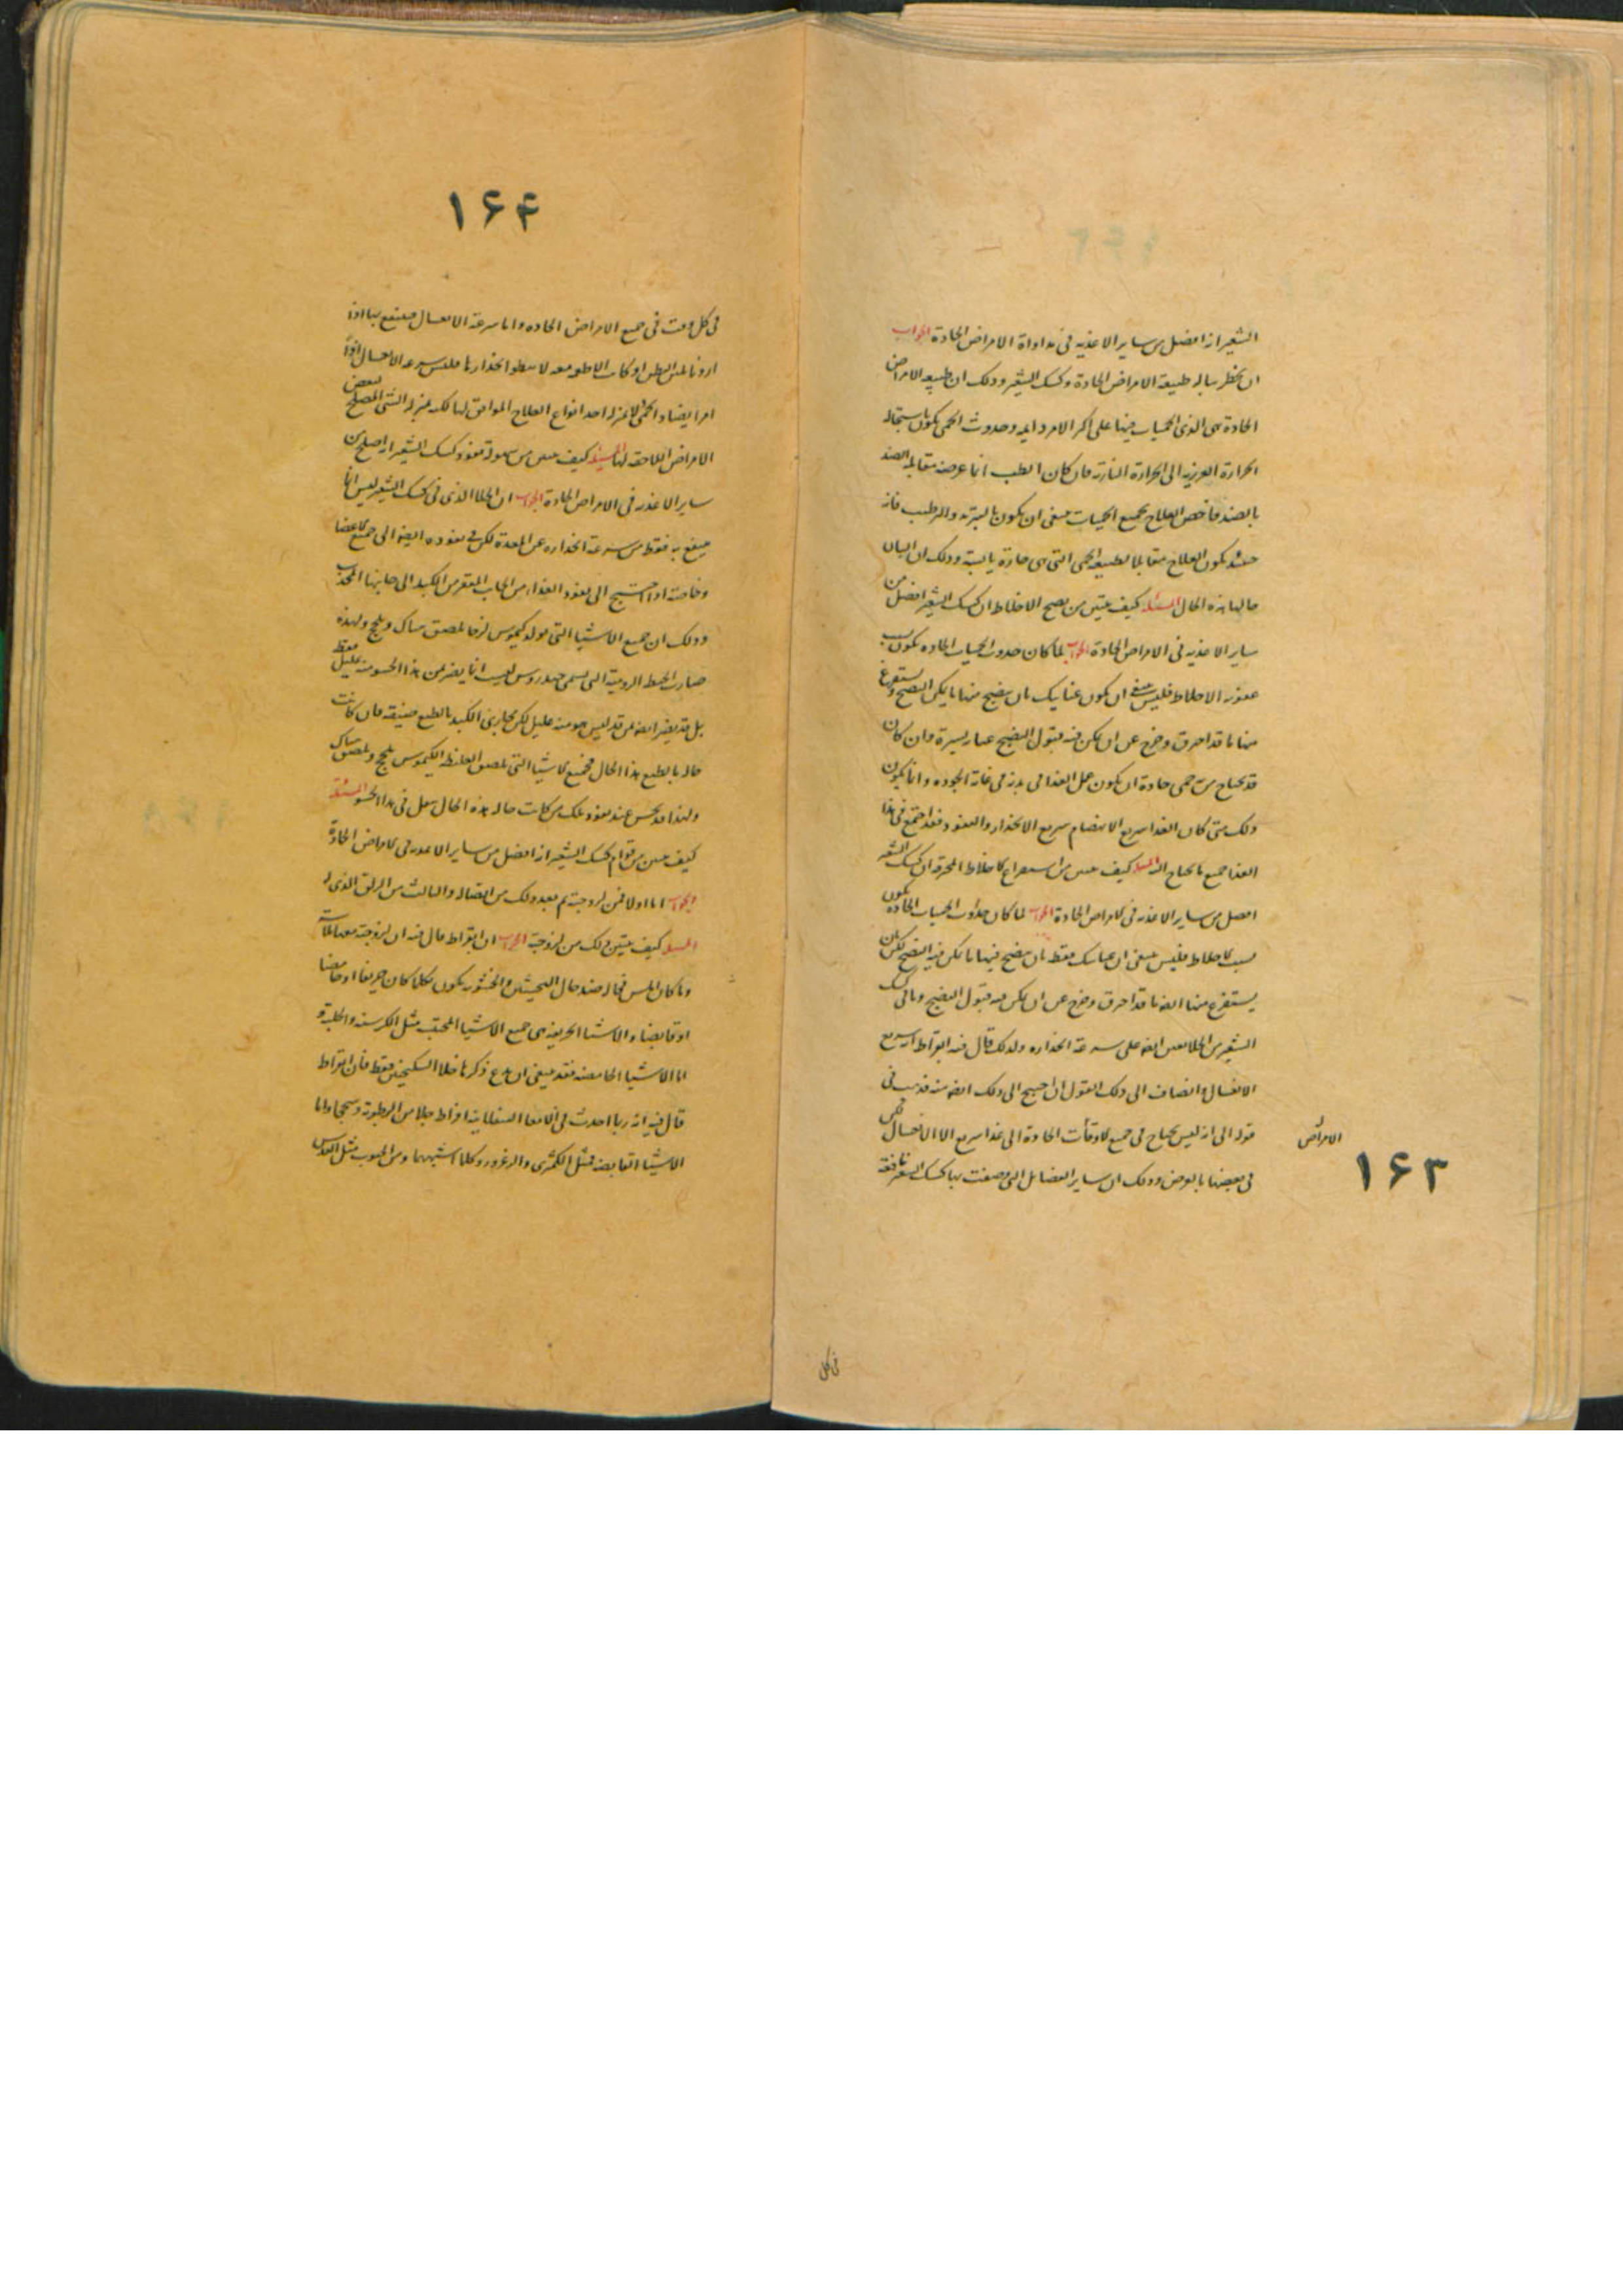 الشعير انه افضل من ساير الاغذيه فى مداواة الامراض الحادة الجواب
ان يخطر بباله طبيعة الامراض الحادة وكشك الشعير وذلك ان طبيعه الامراض
الحادة هى الذى الحميات فيها على اكثر الامر دايمه وحدوث الحمى يكون باستحاله
الحرارة الغريزيه الى الحرارة النارية فان كان الطب انما غرضه مقابله الضد
بالضد فاخص العلاج بجميع الحميات ينبغى ان يكون بالتبريد والترطيب فانه
حينئذ يكون العلاج مقابلا لطبيعه الحمى التى هى حارة يابسة وذلك ان البدن
حالها هذه الحال المسئلة كيف يتبين من نضج الاخلاط ان كشك الشعير افضل من
ساير الاغذيه فى الامراض الحادة الجواب لما كان حدوث الحميات الحاده يكون بسبب
عفونه الاخلاط فليس ينبغى ان يكون عنايتك بان ينضج منها ما يمكن النضج ويستفرغ
منها ما قد احترق وخرج عن ان يمكن فيه قبول النضج عبار يسيرة وان كان
قد يحتاج من حمى حادة ان يكون عمل الغذا فى بدنه فى غاية الجوده وانما يكون
ذلك متى كان الغذا سريع الانهضام سريع الانحدار والنفوذ فقد اجتمع فى هذا
الغذا جميع ما يحتاج اليه المسئلة كيف يتبين من استفراغ الاخلاط المحرقه ان كشك الشعير
افضل من ساير الاغذيه فى الامراض الحادة الجواب لما كان حدوث الحميات الحاده يكون
بسبب الاخلاط فليس ينبغى ان عنايتك فقط بان ينضج فيها ما يمكن فيه النضج لكن بان
يستفرغ منها ايضا ما قد احترق وخرج عن ان يمكن فيه قبول النضج وما فى كشك
الشعير من الجلا يعين ايضا على سرعة انحداره ولذلك قال فيه ابقراط انه سريع
الانغسال وانضاف الى ذلك القول ان احتيج الى ذلك ايضا منه قد يسبق
قوله الى انه ليس يحتاج فى جميع الاوقات الحادة الى غذا سريع الا الانغسال لكن
فى بعضها بالعرض وذلك ان ساير الفضايل التى وصفت بها كشك الشعير نافعة
الامراض
١۶٣
فى كل
١۶۴
فى كل وقت فى جميع الامراض الحاده واما سرعة الانغسال فينتفع بها اذا
اردنا تليين البطن او كانت الاطعمه لا تبطو انحدارها فليس سرعه الانغسال اذا
امرا يضاد الحمى لانه بمنزله احد انواع العلاج الموافق لها لكنه بمنزله الشى المصلح لبعض
الامراض اللاحقه لها المسئلة كيف يتبين من سهولة نفوذ كشك الشعير انه اصلح من
ساير الاغذيه فى الامراض الحادة الجواب ان الجلا الذى فى كشك الشعير ليس انما
ينتفع به فقط من سرعة انحداره عن المعدة لكن فى نفوذه ايضا الى جميع الاعضا
وخاصة اذا احتيج الى نفوذ الغذا من الجانب المقعر من الكبد الى جانبها المحدب
وذلك ان جميع الاشيا التى تولد كيموس لزجا تلصق هناك وتلحج ولهذه
صارت الحنطه الروميه التى تسمى خندروس ليست انما يضر من هذا الحسو منه عليل فقط
بل قد يضر ايضا من قد ليس هو منه عليل لكن مجارى الكبد بالطبع ضيقه فان كانت
حاله بالطبع هذا الحال فجميع الاشيا التى تلصق الغليظ الكيموس تلحج وتلصق هناك
ولهذا قد يحس عند نفوذ تلك من كانت حاله هذه الحال بثقل فى هذا الحشو المسئلة
كيف يتبين من قوام كشك الشعير انه افضل من ساير الاغذيه فى الامراض الحادة
الجواب اما اولا فمن لزوجته ثم بعد ذلك من اتصاله والثالث من الزلق الذى له
المسئلة كيف يتبين ذلك من لزوجته الجواب ان ابقراط قال فيه ان لزوجته معها ملاسة
وما كان املس فحاله ضد حال الخشن والخشونه يكون لكلما كان حريفا او حامضا
او قابضا والاشيا الحريفه هى جميع الاشيا المحلله مثل الكرسنه والحلبة و
اما الاشيا الحامضه فقد ينبغى ان يدع ذكرها خلا السكنجبين فقط فان ابقراط
قال فيه انه ربما احدث فى الامعا السفلانيه افراط جلا من الرطوبة وسحجا واما
الاشيا القابضه فمثل الكمثرى والزعرور وكلما اشبههما ومن الحبوب مثل العدس